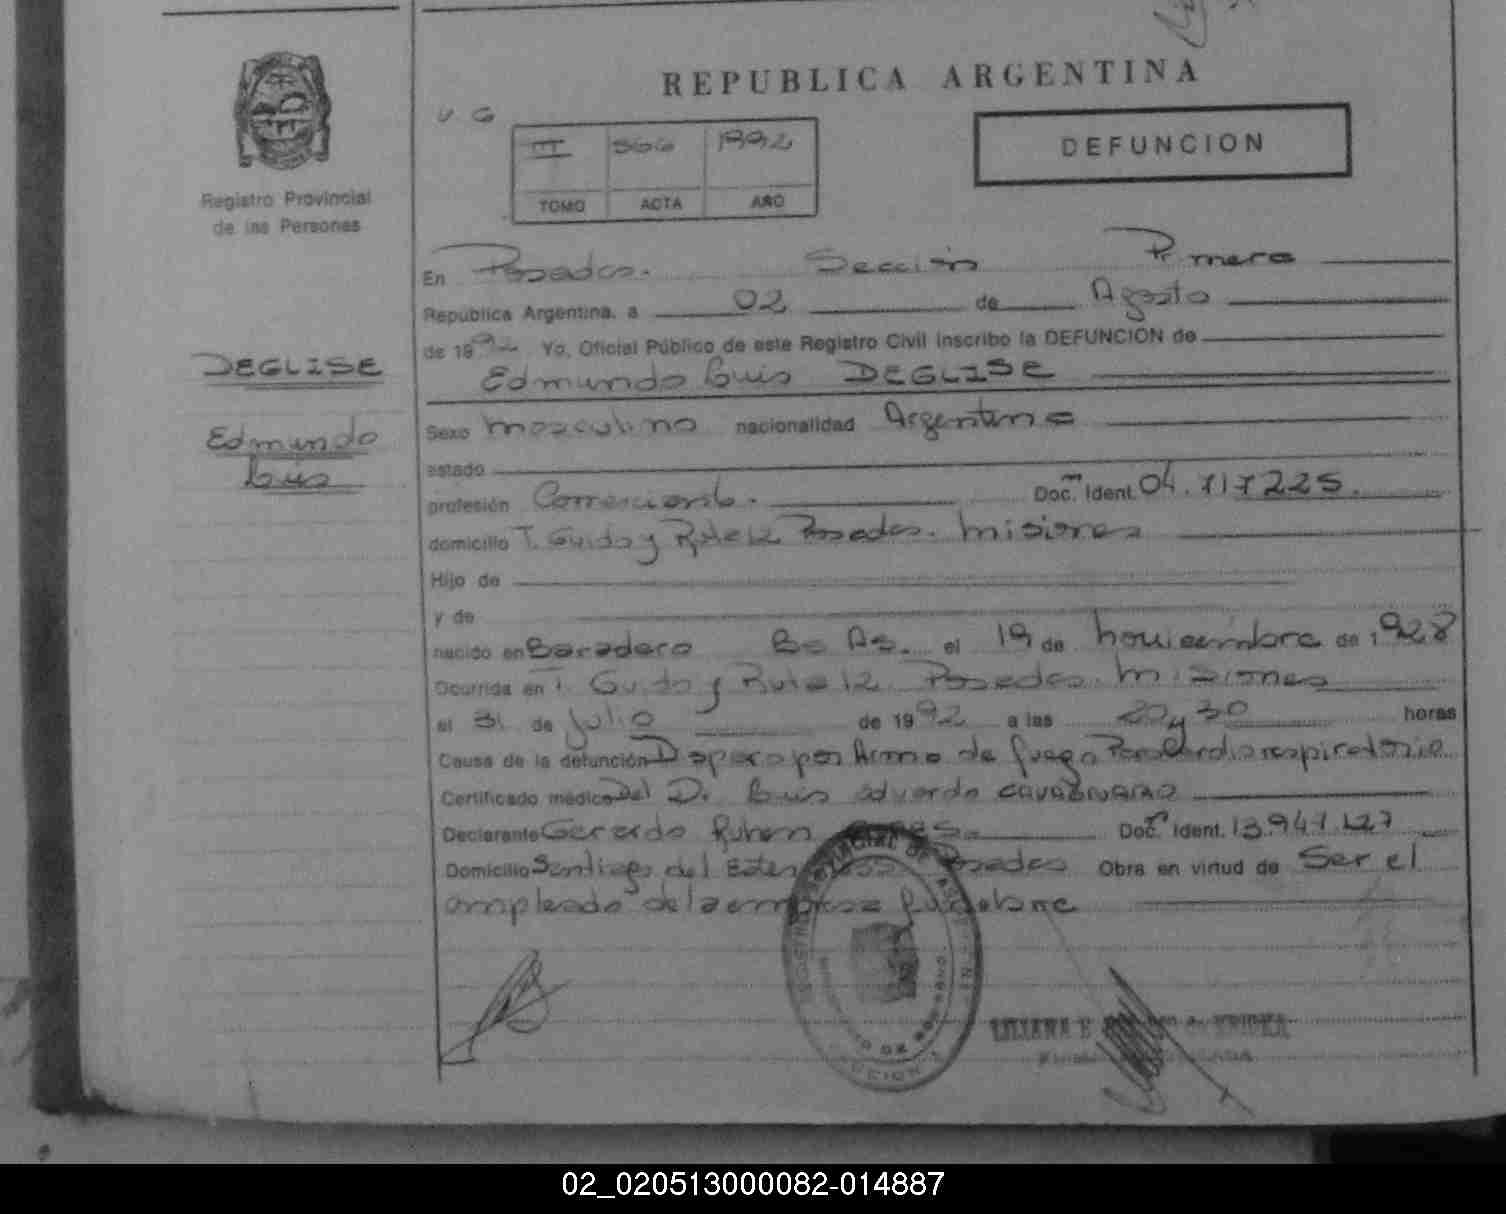 REPUBLICA ARGENTINA
V G
III 566 1992
TOMO ACTA AÑO
DEFUNCION
Registro Provincial
de las Personas
DEGLISE
Edmundo
Luis
En Posadas. Sección Primera
República Argentina, a 02 de Agosto
de 1992 Yo, Oficial Público de este Registro Civil inscribo la DEFUNCION de
Edmundo Luis DEGLISE
Sexo masculino nacionalidad Argentina
estado
profesión Comerciante. Doc. Ident. 04.717.225.
domicilio T. Guido y Ruta 12 Posadas. Misiones
Hijo de
y de
nacido en Baradero Bs As. el 19 de noviembre de 1928
Ocurrida en T. Guido y Ruta 12 Posadas. Misiones
el 31 de julio de 1992 a las 20 y 30 horas
Causa de la defunción Disparo por Arma de fuego Paro Cardiorespiratorio
Certificado médico Del Dr. Luis Eduardo
Declarante Gerardo Ruben Doc. Ident. 13.947.127
Domicilio Santiago del Estero Posadas Obra en virtud de Ser el
empleado de la empresa
LILIANA E
SECCION 1
02_020513000082-014887